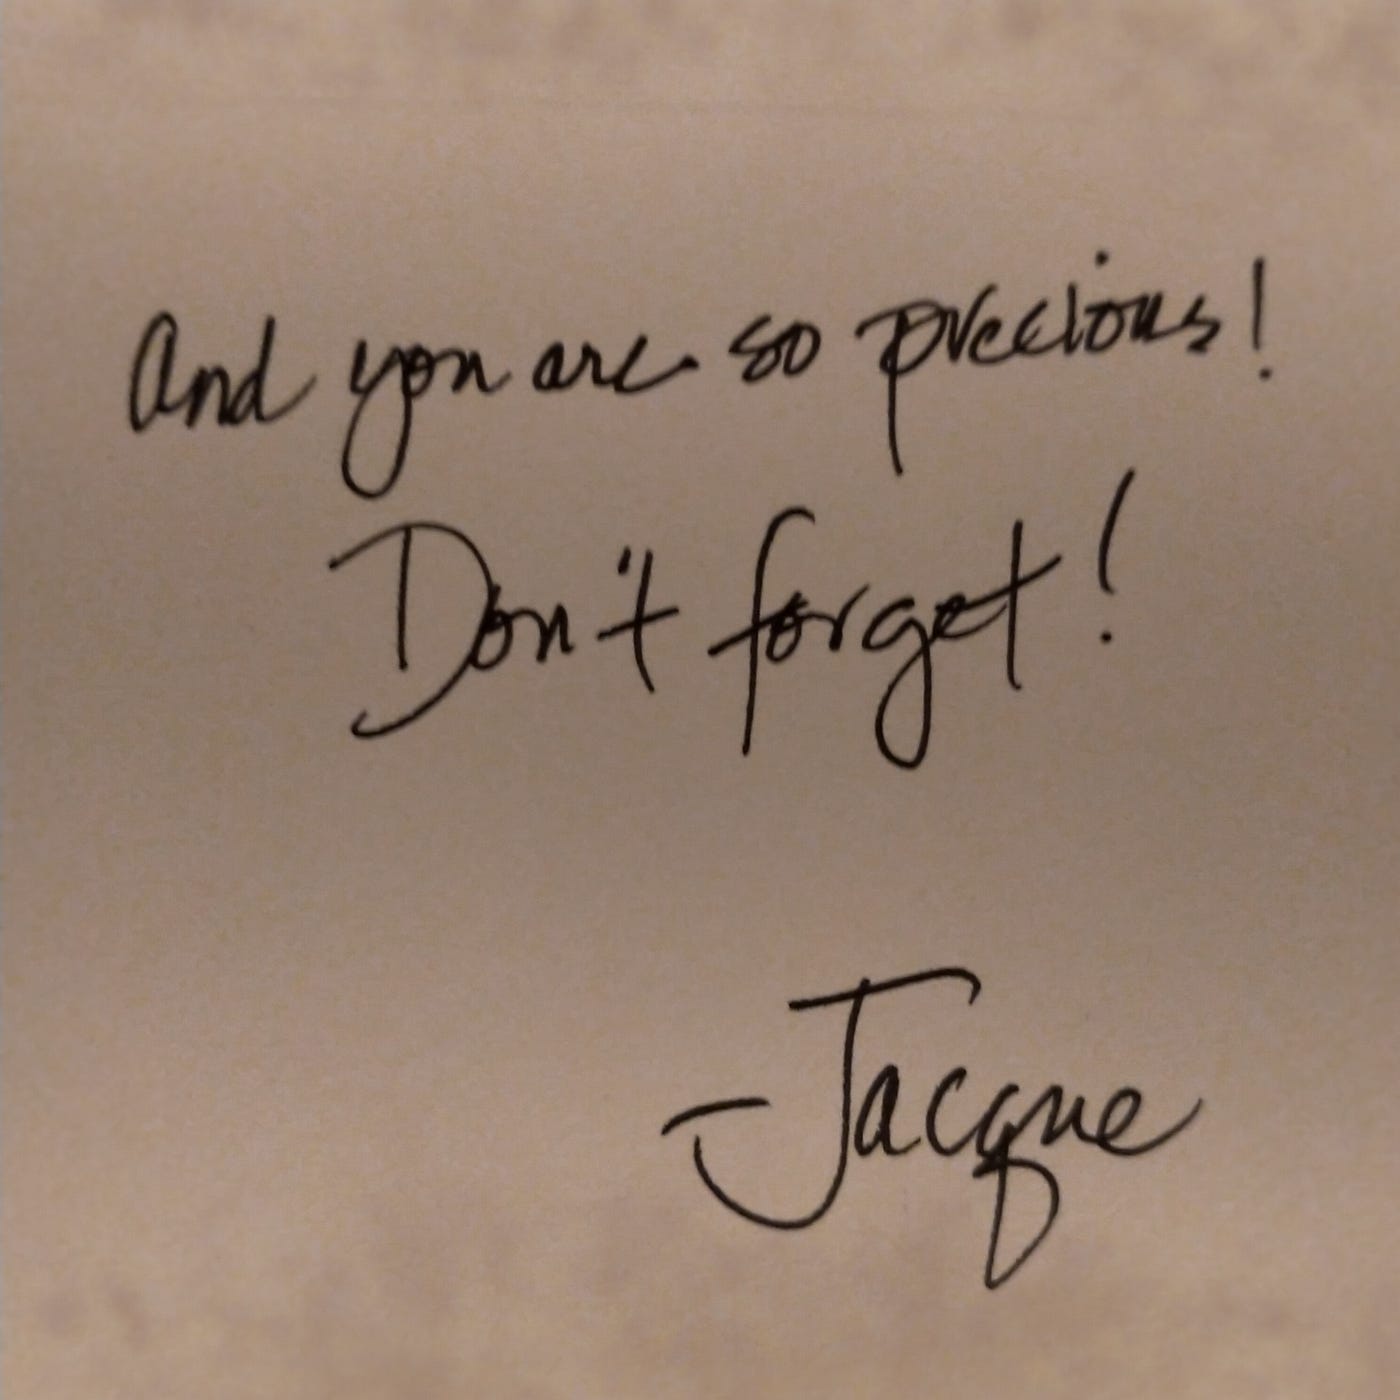 And you are so precious!
Don't forget!
-Jacque